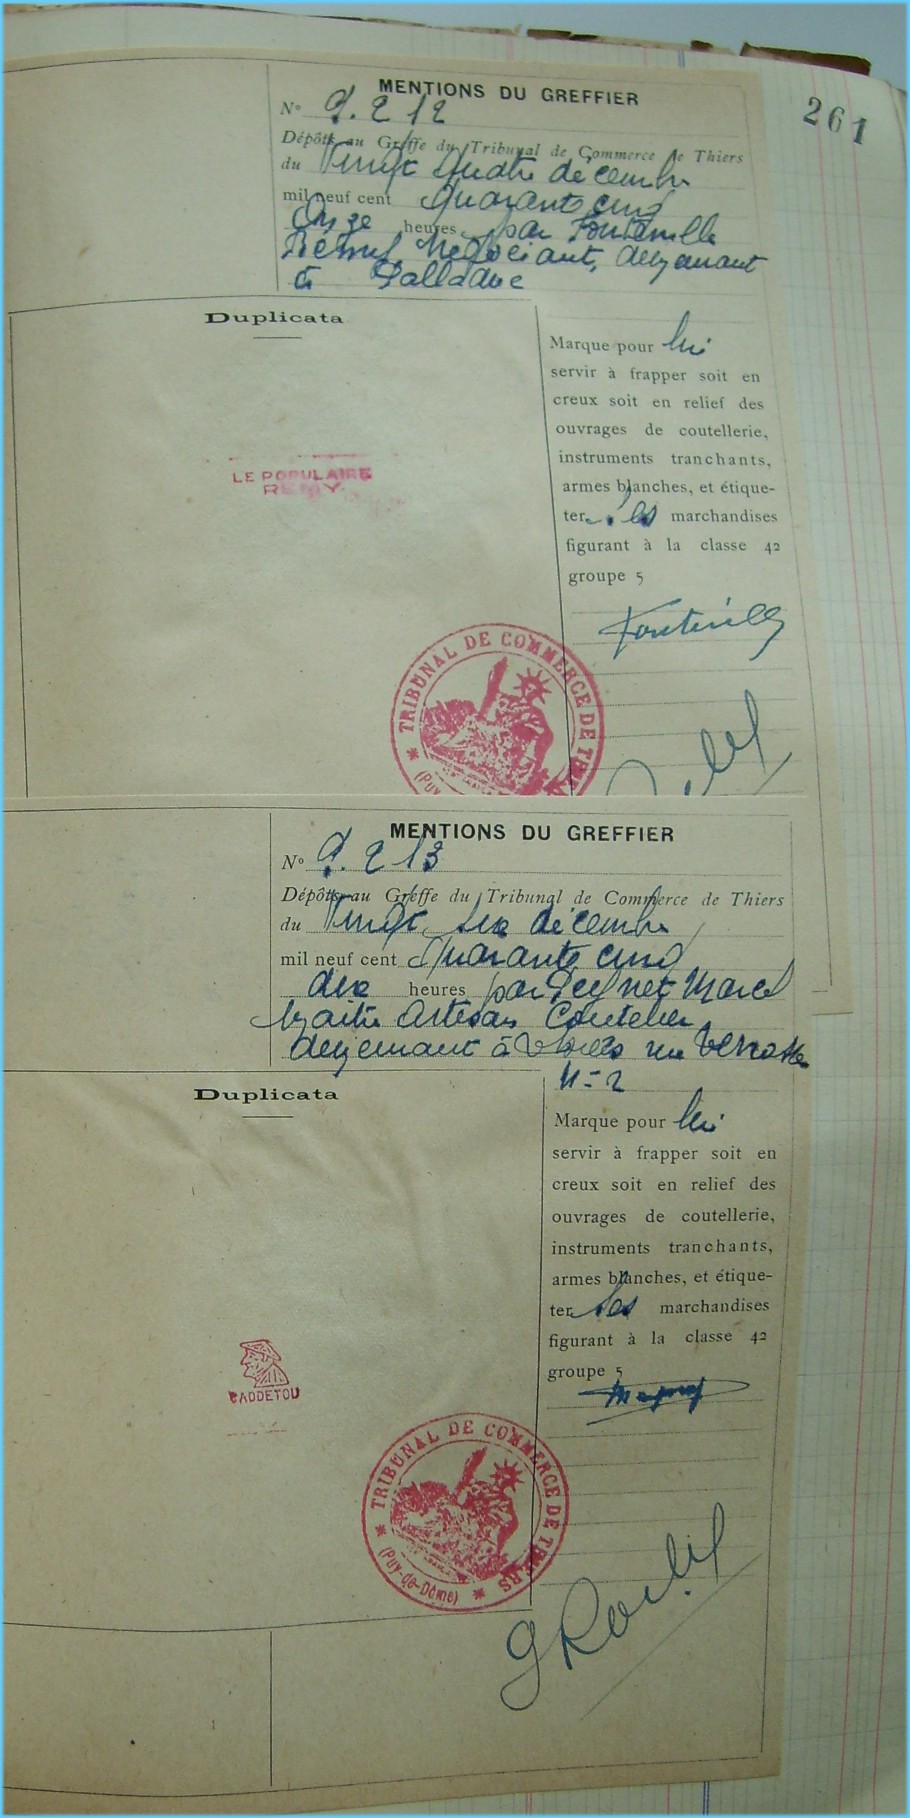 261
MENTIONS DU GREFFIER
N° 9.212
Dépôts au Greffe du Tribunal de Commerce de Thiers
du Vingt quatre décembre
mil neuf cent Quarante cinq
Onze heures par Fontenille
Rémy, Négociant, demeurant
à Palladuc
Duplicata
LE POPULAIRE
REMY
Marque pour lui
servir à frapper soit en
creux soit en relief des
ouvrages de coutellerie,
instruments tranchants,
armes blanches, et étique-
ter les marchandises
figurant à la classe 42
groupe 5
Fontenille
TRIBUNAL DE COMMERCE DE
MENTIONS DU GREFFIER
N° 9.213
Dépôts au Greffe du Tribunal de Commerce de Thiers
du Vingt six décembre
mil neuf cent Quarante cinq
dix heures par Marcel
Maître Artisan Coutelier,
demeurant à Thiers rue
N=2
Duplicata
CADDETOU
Marque pour lui
servir à frapper soit en
creux soit en relief des
ouvrages de coutellerie,
instruments tranchants,
armes blanches, et étique-
ter ses marchandises
figurant à la classe 42
groupe 5
TRIBUNAL DE COMMERCE DE THIERS
(PUY-de-Dôme)